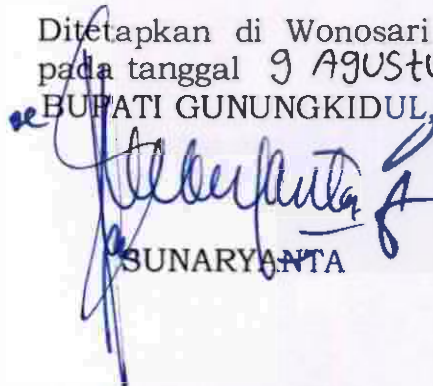 Ditetapkan di Wonosari
pada tanggal 9 AgUStu
BUPATI GUNUNGKIDUL,
SUNARYANTA